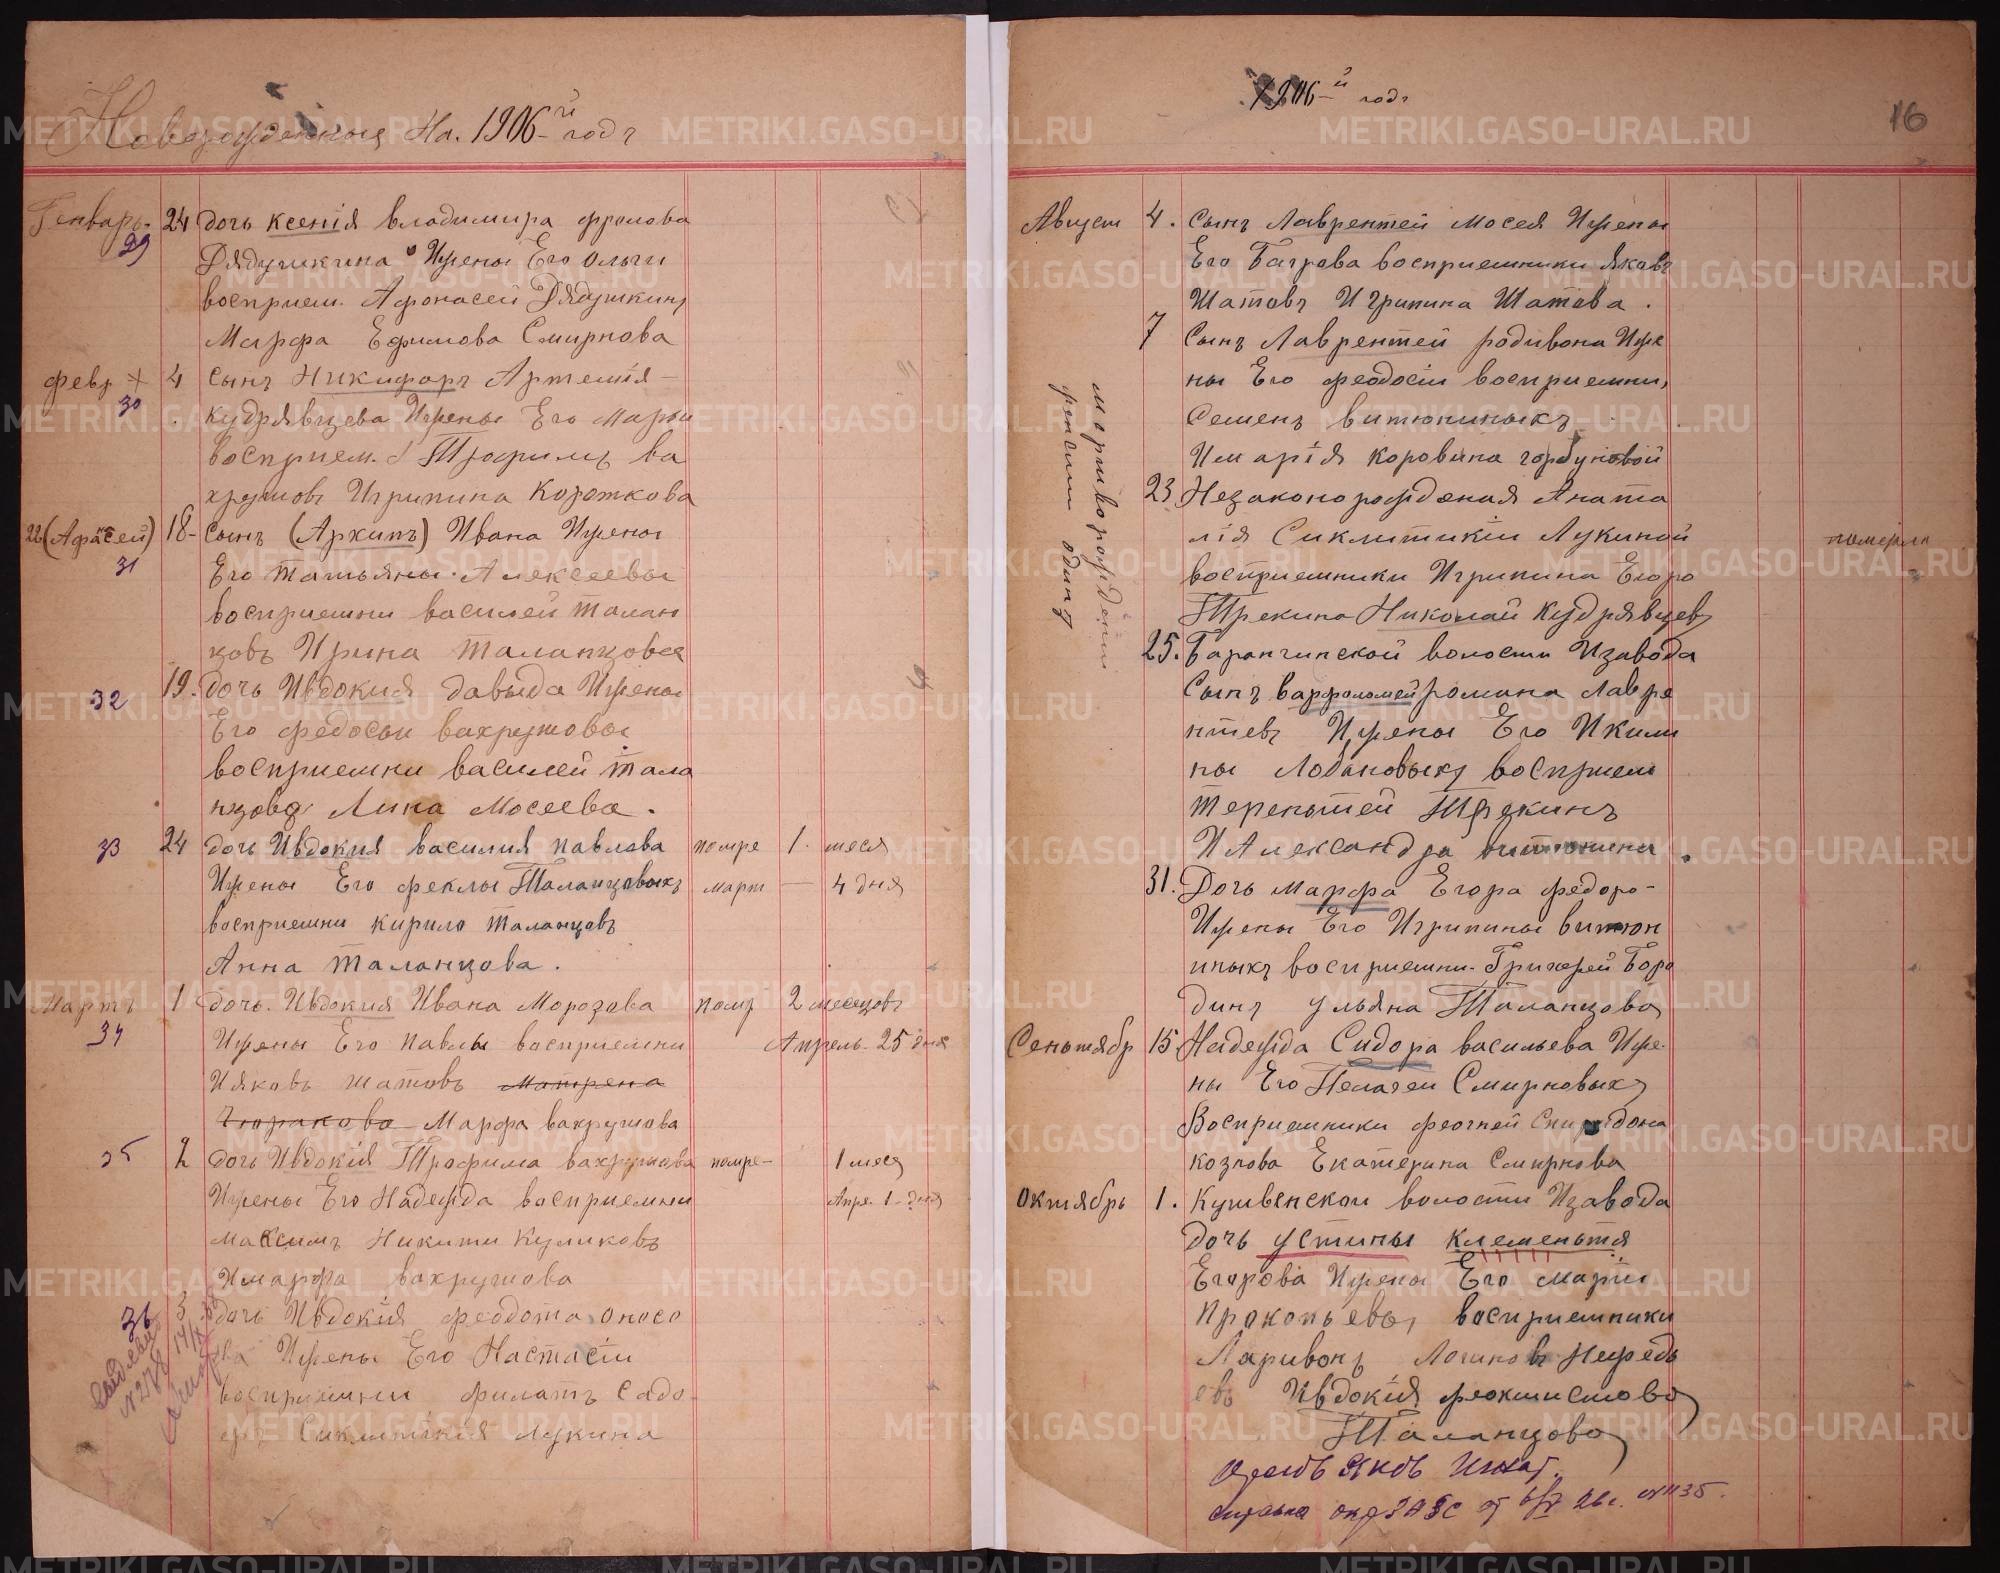 Новорожденныя На. 1906-й годъ
Генварь. 24 дочь Ксенія Владимира Фролова
29
Дядушкина Ижены Его Ольги
восприем. Афонасей Дядушкинъ
Марфа Ефимова Смирнова
февр + 4 сынъ Никифоръ Артемія
30
Кудрявцева Ижены Его Марьи
восприем. Трофимъ ва
хрушовъ Игрипина Короткова
22 18- сынъ (Архипъ) Ивана Ижены
31
Его Татьяны Алексеевы
восприемни василей Талан
цовъ Ирина Таланцова
32 19. дочь Ивдокия давыда Ижены
Его федосьи вахрушовы
восприемни василей тала
нцовъ Анна Мосеева.
33 24 дочь Ивдокия василия павлова помре 1. меся
Ижены Его феклы Таланцовыхъ март — 4 дня
восприемни кирило Таланцовъ
Анна Таланцова.
Мартъ 1 дочь. Ивдокия Ивана Морозова помр 2 месецовъ
34
Ижены Его павлы восприемни Апрель. 25 дня
Ияковъ шатовъ Матрена
Марфа вахрушова
35 2 дочь Ивдокія Трофима вахрушова помре- 1 меся
Ижены Его Надежда восприемни Апре. 1- дня
максимъ Никити Куликовъ
Имарфа вахрушова
36 3 дочь Ивдокія феодота оносо
ва Ижены Его Настасіи
восприемни филатъ Садо
Сиклитикія Лукина
1906-й годъ
16
Август 4. сынъ Лаврентей Мосея Ижены
Его Багрова восприемники Яковъ
Шатовъ Игрипина Шатова.
7 Сынъ Лаврентей родивона Иже
ны Его феодосіи восприемни,
Семенъ витюниныхъ
Имарія коровина горбуновой
мортворожденій
женскии одинъ
23 Незаконорожденая Аната
лія Сиклитикіи Лукиной померла
восприемники Игрипина Егоро
Трекина Николай Кудрявцевъ
25. Баранчинской волости Изавода
Сынъ варфоломей романа Лавре
нтевъ Ижены Его Икили
ны Лобановыхъ восприем
терентей Трекинъ
И Александра витюнина.
31. Дочь марфа Егора федоро-
Ижены Его Игрипины витюн
иныхъ восприемни. Григорей Боро
динъ ульяна Таланцова
Сеньтябр 15 Надежда Сидора васильева Иже.
ны Его Пелагеи Смирновыхъ
Восприемники феогней Спиридона
козлова Екатерина Смирнова
Октябрь 1. Кушвенской волости Изавода
дочь устины клеменьтія
Егорова Ижены Его Маріи
прокопьевы, восприемники
Ларивонъ Логиновъ Нефедь
евъ Ивдокія феоктистова
Таланцова